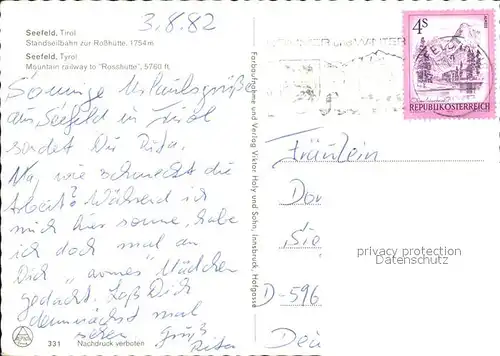 3.8.82
Seefeld, Tirol
Standseilbahn zur Roßhütte, 1754 m
Seefeld, Tyrol
Mountain railway to "Rosshutte", 5760 ft.
Sonnige Urlaubsgrüße
aus Seefeld in Tirol
sendet Dir Rita.
Na, wie schmeckt die
Arbeit? Während ich
mich hier sonne, habe
ich doch mal an
Dich "armes" Mädchen
gedacht. Laß Dich
demnächst mal
sehen Gruß
Rita
331 Nachdruck verboten
Farbaufnahme und Verlag Viktor Holy und Sohn, Innsbruck, Hofgasse
SOMMER und WINTER
4S
REPUBLIK ÖSTERREICH
Fräulein
Dor
Sie
D-596
privacy protection
www.oldthing.com